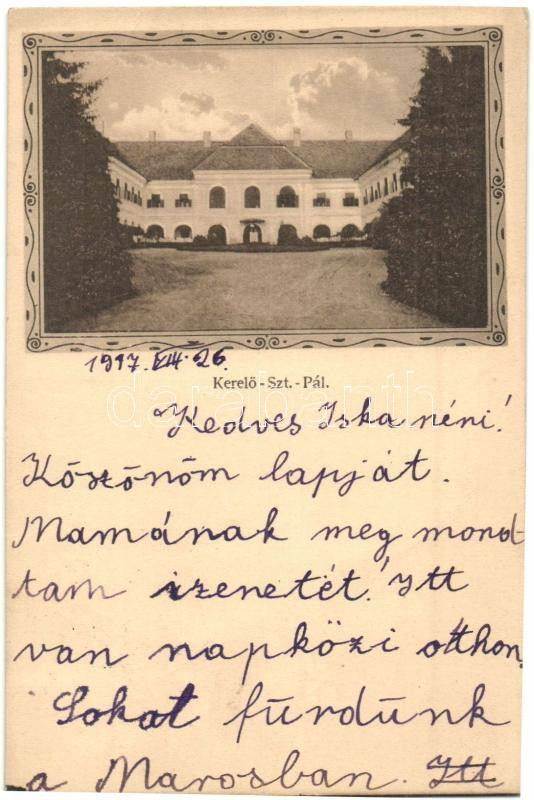 1917. VIII. 26.
Kerelö-Szt.-Pál.
Kedves Iska néni!
Köszönöm lapját.
Mamának meg mond-
tam izenetét! Itt
van napközi otthon.
Sokat fürdünk
a Marosban. Itt
darabanth